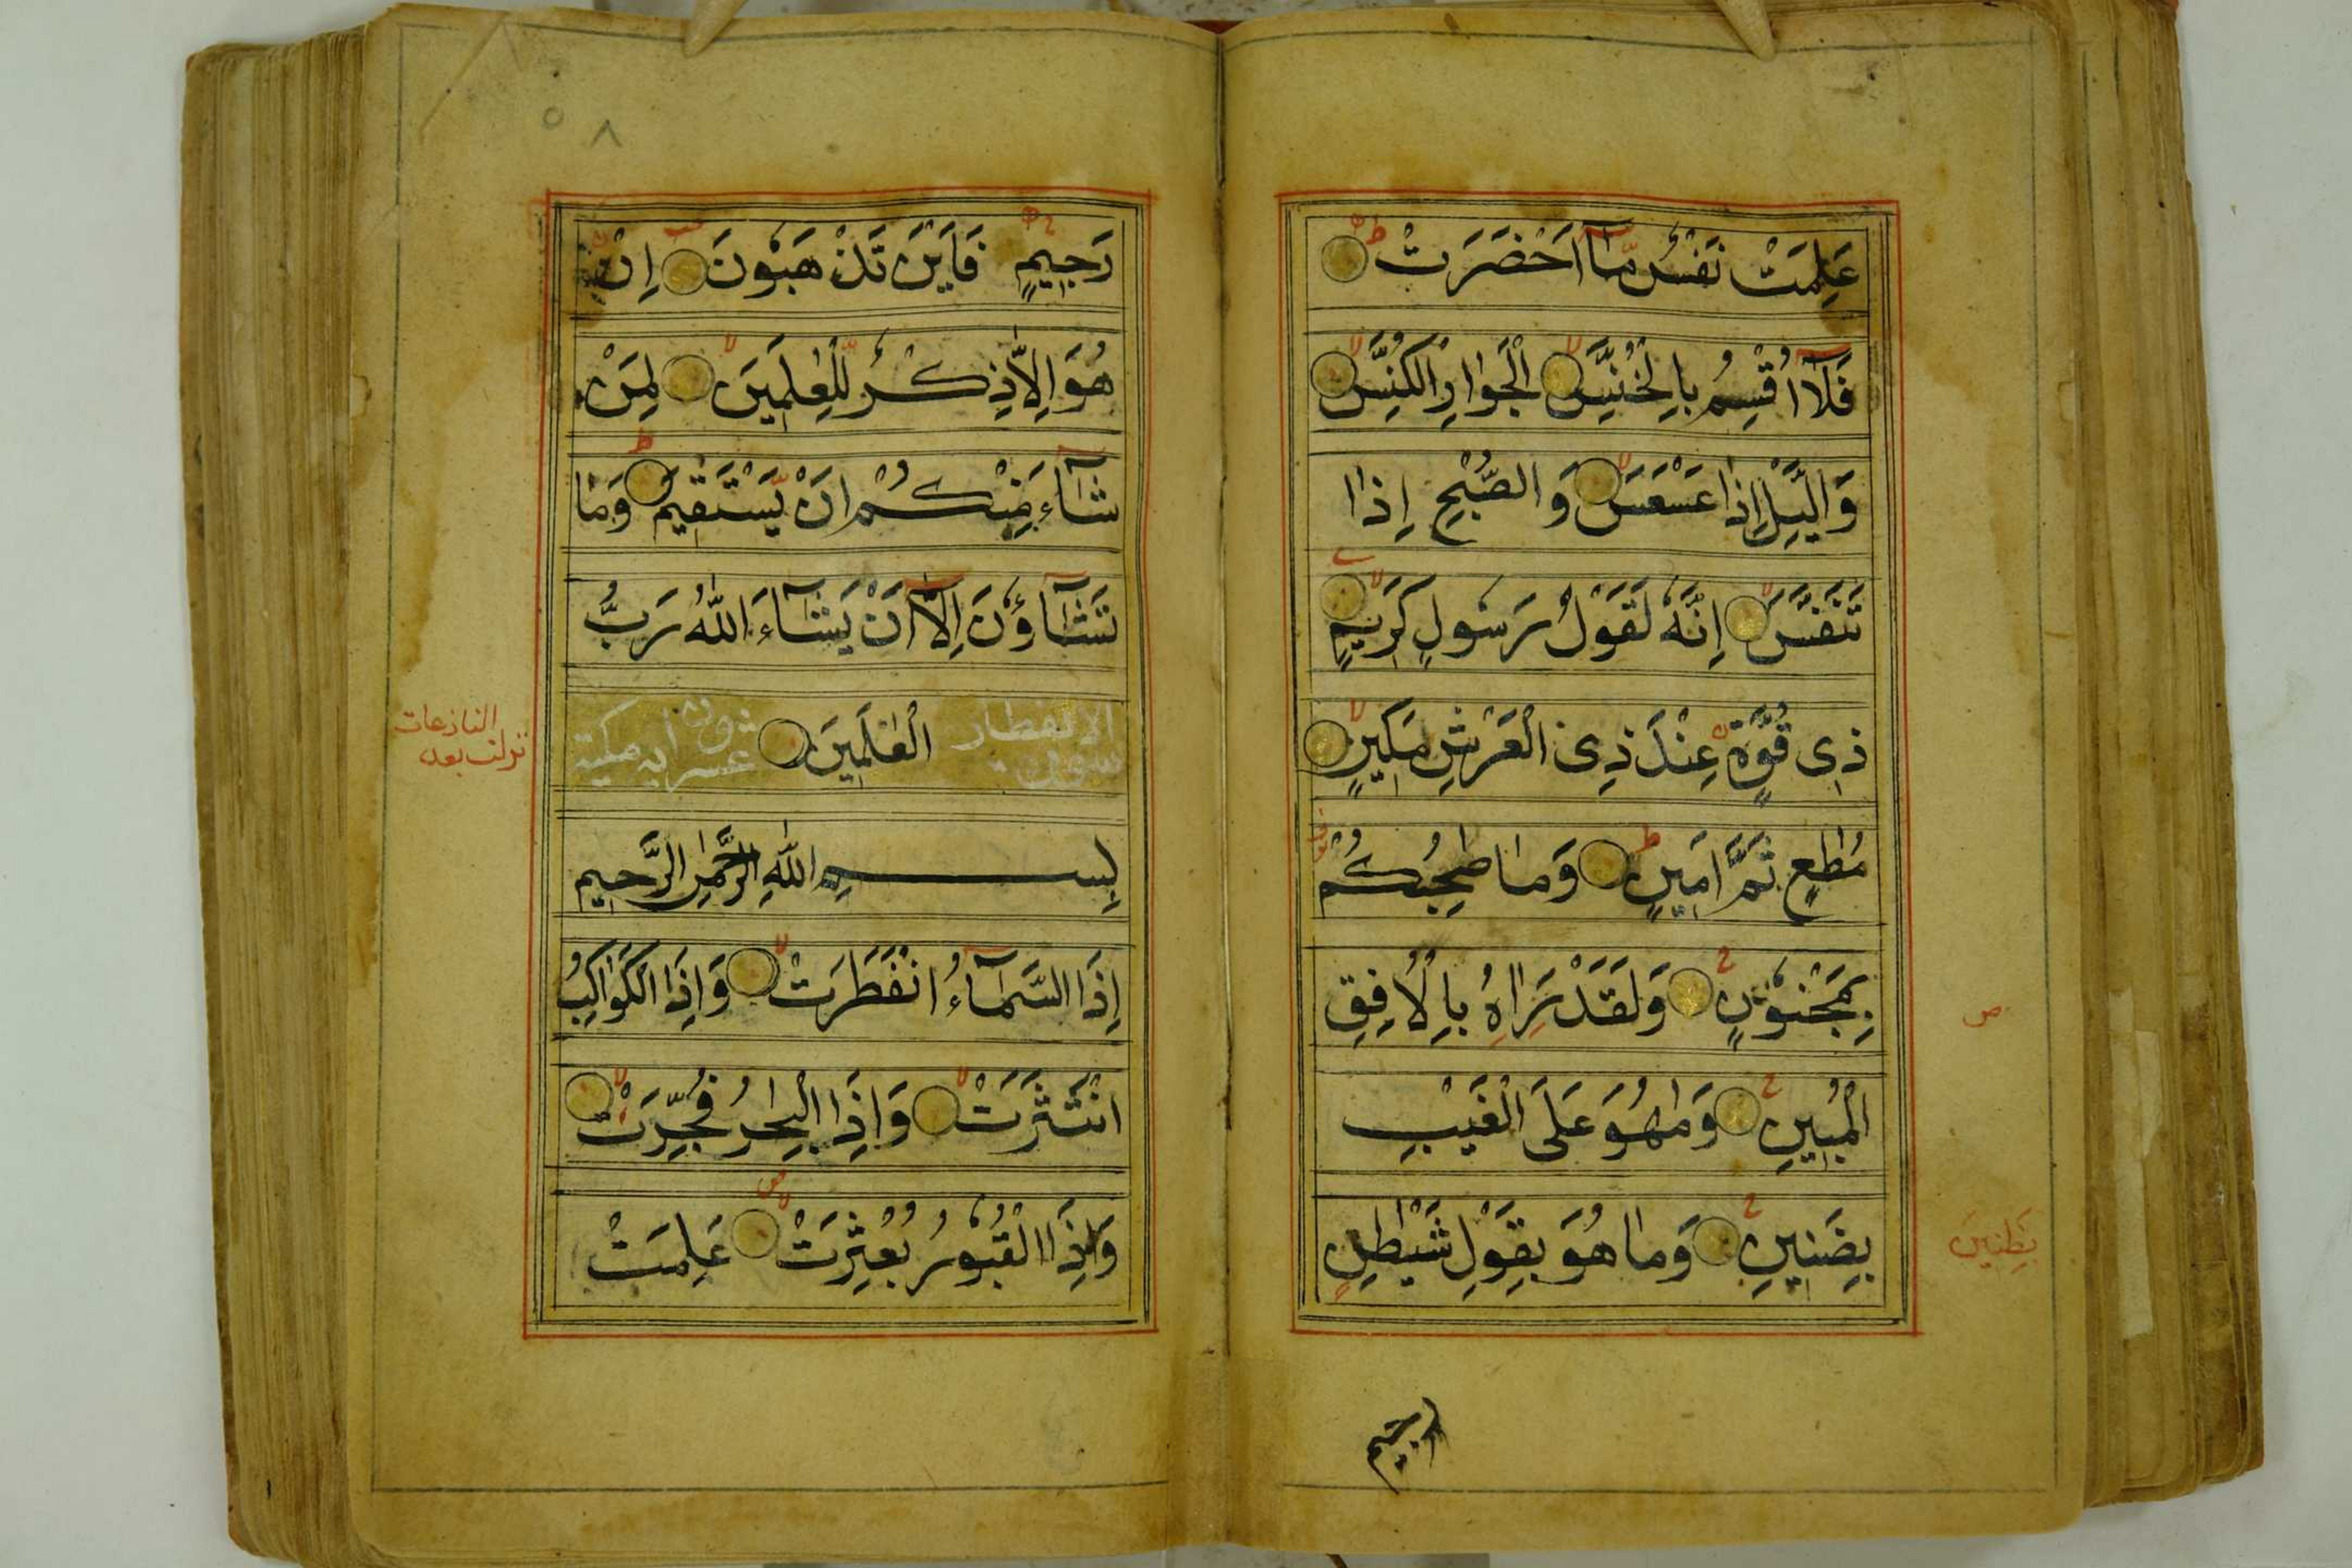 عَلِمَتْ نَفْسٌ مَّآ اَحْضَرَتْ
فَلَآ اُقْسِمُ بِالْخُنَّسِ الْجَوَارِ الْكُنَّسِ
وَالَّيْلِ اِذَا عَسْعَسَ وَالصُّبْحِ اِذَا
تَنَفَّسَ اِنَّهٗ لَقَوْلُ رَسُولٍ كَرِيمٍ
ذِى قُوَّةٍ عِنْدَ ذِى الْعَرْشِ مَكِينٍ
مُطٰعٍ ثَمَّ اَمِينٍ وَمَا صٰحِبُكُمْ
بِمَجْنُوْنٍ وَلَقَدْ رَاٰهُ بِالْاُفُقِ
ص
الْمُبِينِ وَمَا هُوَ عَلَى الْغَيْبِ
بِضَنِينٍ وَمَا هُوَ بِقَوْلِ شَيْطٰنٍ
بِظَنِينٍ
رجيم
٥٨
رَجِيمٍ فَاَيْنَ تَذْهَبُوْنَ اِنْ
هُوَ اِلَّا ذِكْرٌ لِّلْعٰلَمِينَ لِمَنْ
شَآءَ مِنْكُمْ اَنْ يَّسْتَقِيمَ وَمَا
تَشَآؤُنَ اِلَّآ اَنْ يَشَآءَ اللّٰهُ رَبُّ
الْعٰلَمِينَ
سورة الانفطار
عشر ايه مكية
النازعات
نزلت بعد
بِسْمِ اللّٰهِ الرَّحْمٰنِ الرَّحِيمِ
اِذَا السَّمَآءُ انْفَطَرَتْ وَاِذَا الْكَوَاكِبُ
انْتَثَرَتْ وَاِذَا الْبِحَارُ فُجِّرَتْ
وَاِذَا الْقُبُوْرُ بُعْثِرَتْ عَلِمَتْ